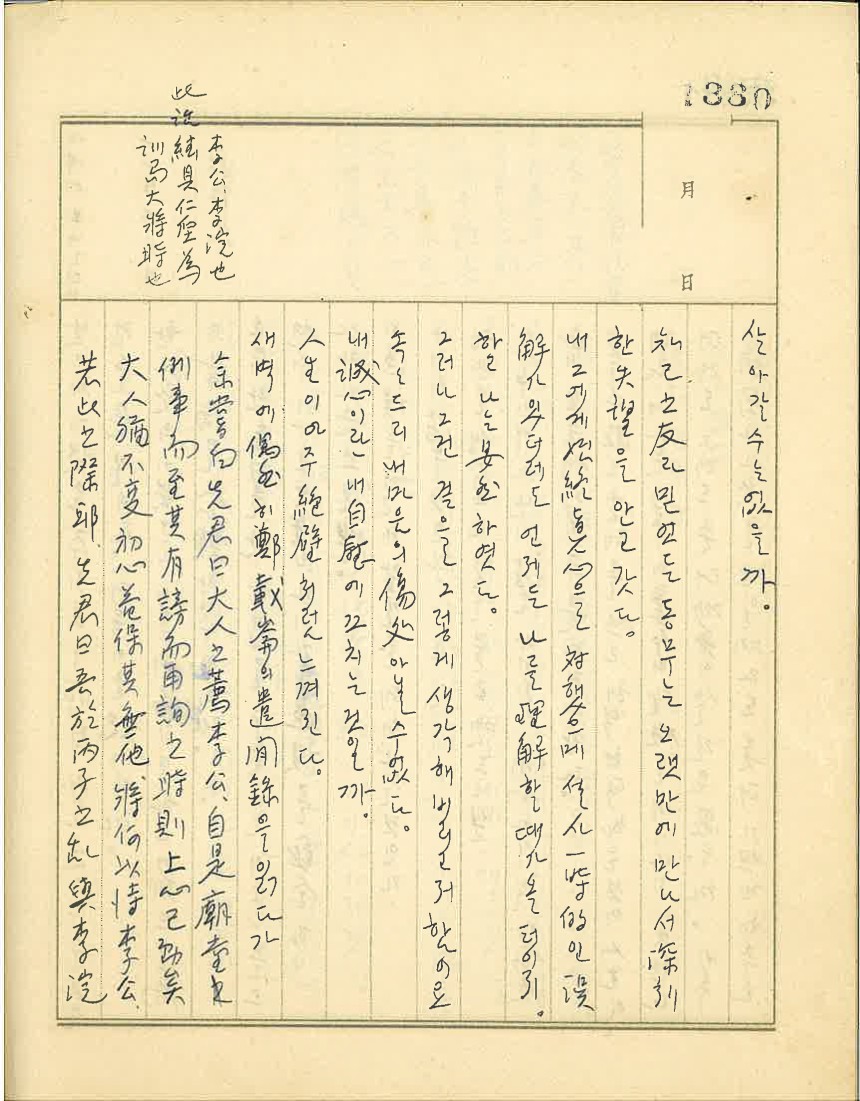 1380
月
日
李公、李浣也
此說 繞具仁垕為
訓局大將時也
살아갈 수는 없을까.
知己之友라 믿었든 동무는 오랫만에 만나서 深刻
한 失望을 안고 갓다.
내 그에게 始終 眞心으로 対했으메 설사 一時的인 誤
解가 있다데도 언제든 나를 理解할 때가 올 터이지.
하고 나는 安然하엿다.
그러나 그건 겉으로 그렇게 생각해 버리고저 함이요
속으론 내 마음의 傷処 아닐 수 없다.
내 誠心이란 내 自慰에 끄치는 것일까.
人生이 아주 絶壁처럼 느껴진다.
새벽에 偶然히 鄭載崙의 遣閒錄을 읽다가
余嘗白先君曰大人之薦李公、自是廟堂之
例事而至其有謗而再詢之時則上心已動矣
大人猶不変初心益保其無他將何以恃李公、
若此之際耶、先君曰吾於丙子之乱與李浣